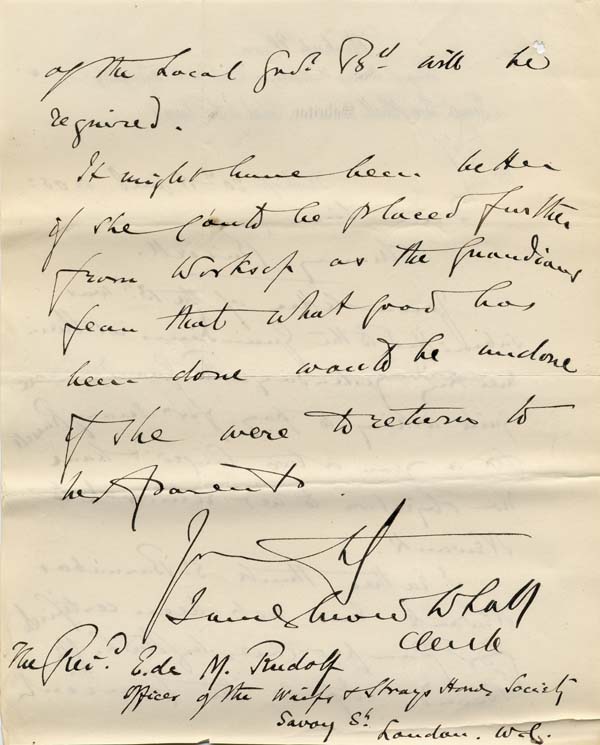 of the Local Govt. Bd will be
required.
It might have been better
if she could be placed further
from Worksop as the Guardians
fear that what good has
been done would be undone
if she were to return to
her parents.
James Snow Whall
Clerk
The Revd. E. de M. Rudolf
Officer of the Waifs & Strays Homes Society
Savoy St.
London. W.C.